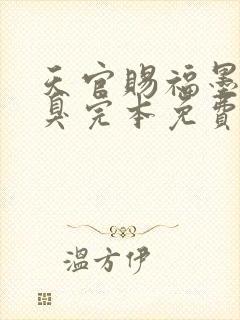 天官赐福墨
臭完本免费
温方伊